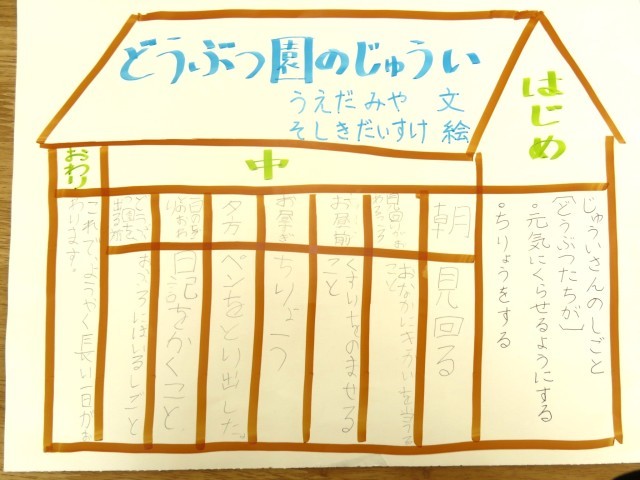 どうぶつ園のじゅうい
うえだ みや 文
そしきだいすけ 絵
はじめ
じゅういさんのしごと
[どうぶつたちが]
・元気にくらせるようにする
・ちりょうをする
中
朝
見回る
おなかに
お昼前
くすりをのませる
こと
お昼すぎ
ちりょう
夕方
ペンをとり出した。
一日のおわり
日記をかくこと
出る前
おふろにはいるしごと
おわり
これで、ようやく長い一日がお
わります。